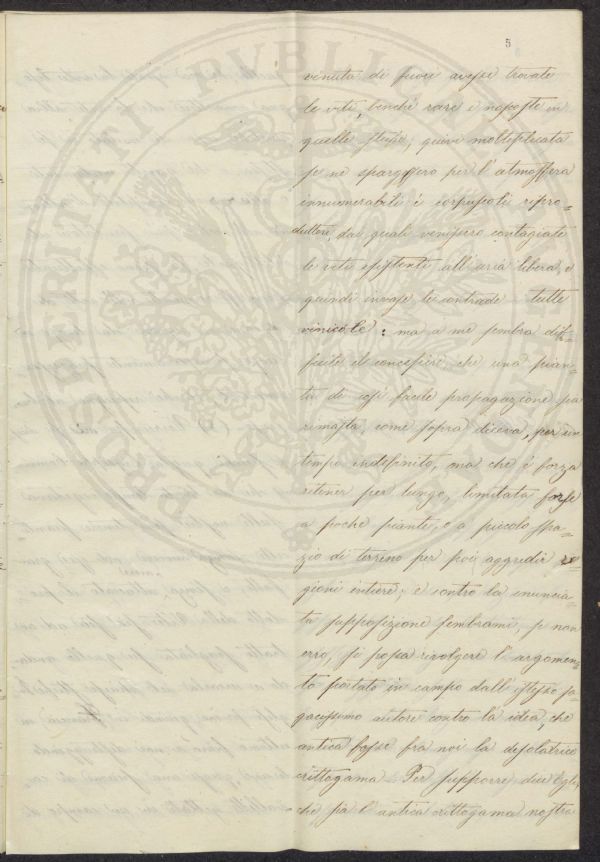 5
venuta di fuori avesse trovate
le viti, benchè rare e nascoste in
quelle stesse; quivi moltiplicata
se ne spargessero per l'atmosfera
innumerabili i corpuscoli ripro=
duttori, dai quali venissero contagiate
le viti esistenti all'aria libera, e
quindi invase le contrade tutte
vinicole: ma a me sembra dif=
ficile il concepire, che una pian=
ta di sì facile propagazione sia
rimasta come sopra diceva, per un
tempo indefinito, ma che è forza
ritener per lungo, limitata forse
a poche piante, o a piccolo spa=
zio di terreno per poi aggredir re=
gioni intiere; e contro la enuncia=
ta supposizione sembrami, se non
erro, si possa rivolgere l'argomen=
to portato in campo dall'istesso sa=
gacissimo autore contro la idea, che
antica fosse fra noi la desolatrice
crittogama. Per supporre dice Egli,
che sia l'antica crittogama nostra
PROSPERITATI PVBLICAE